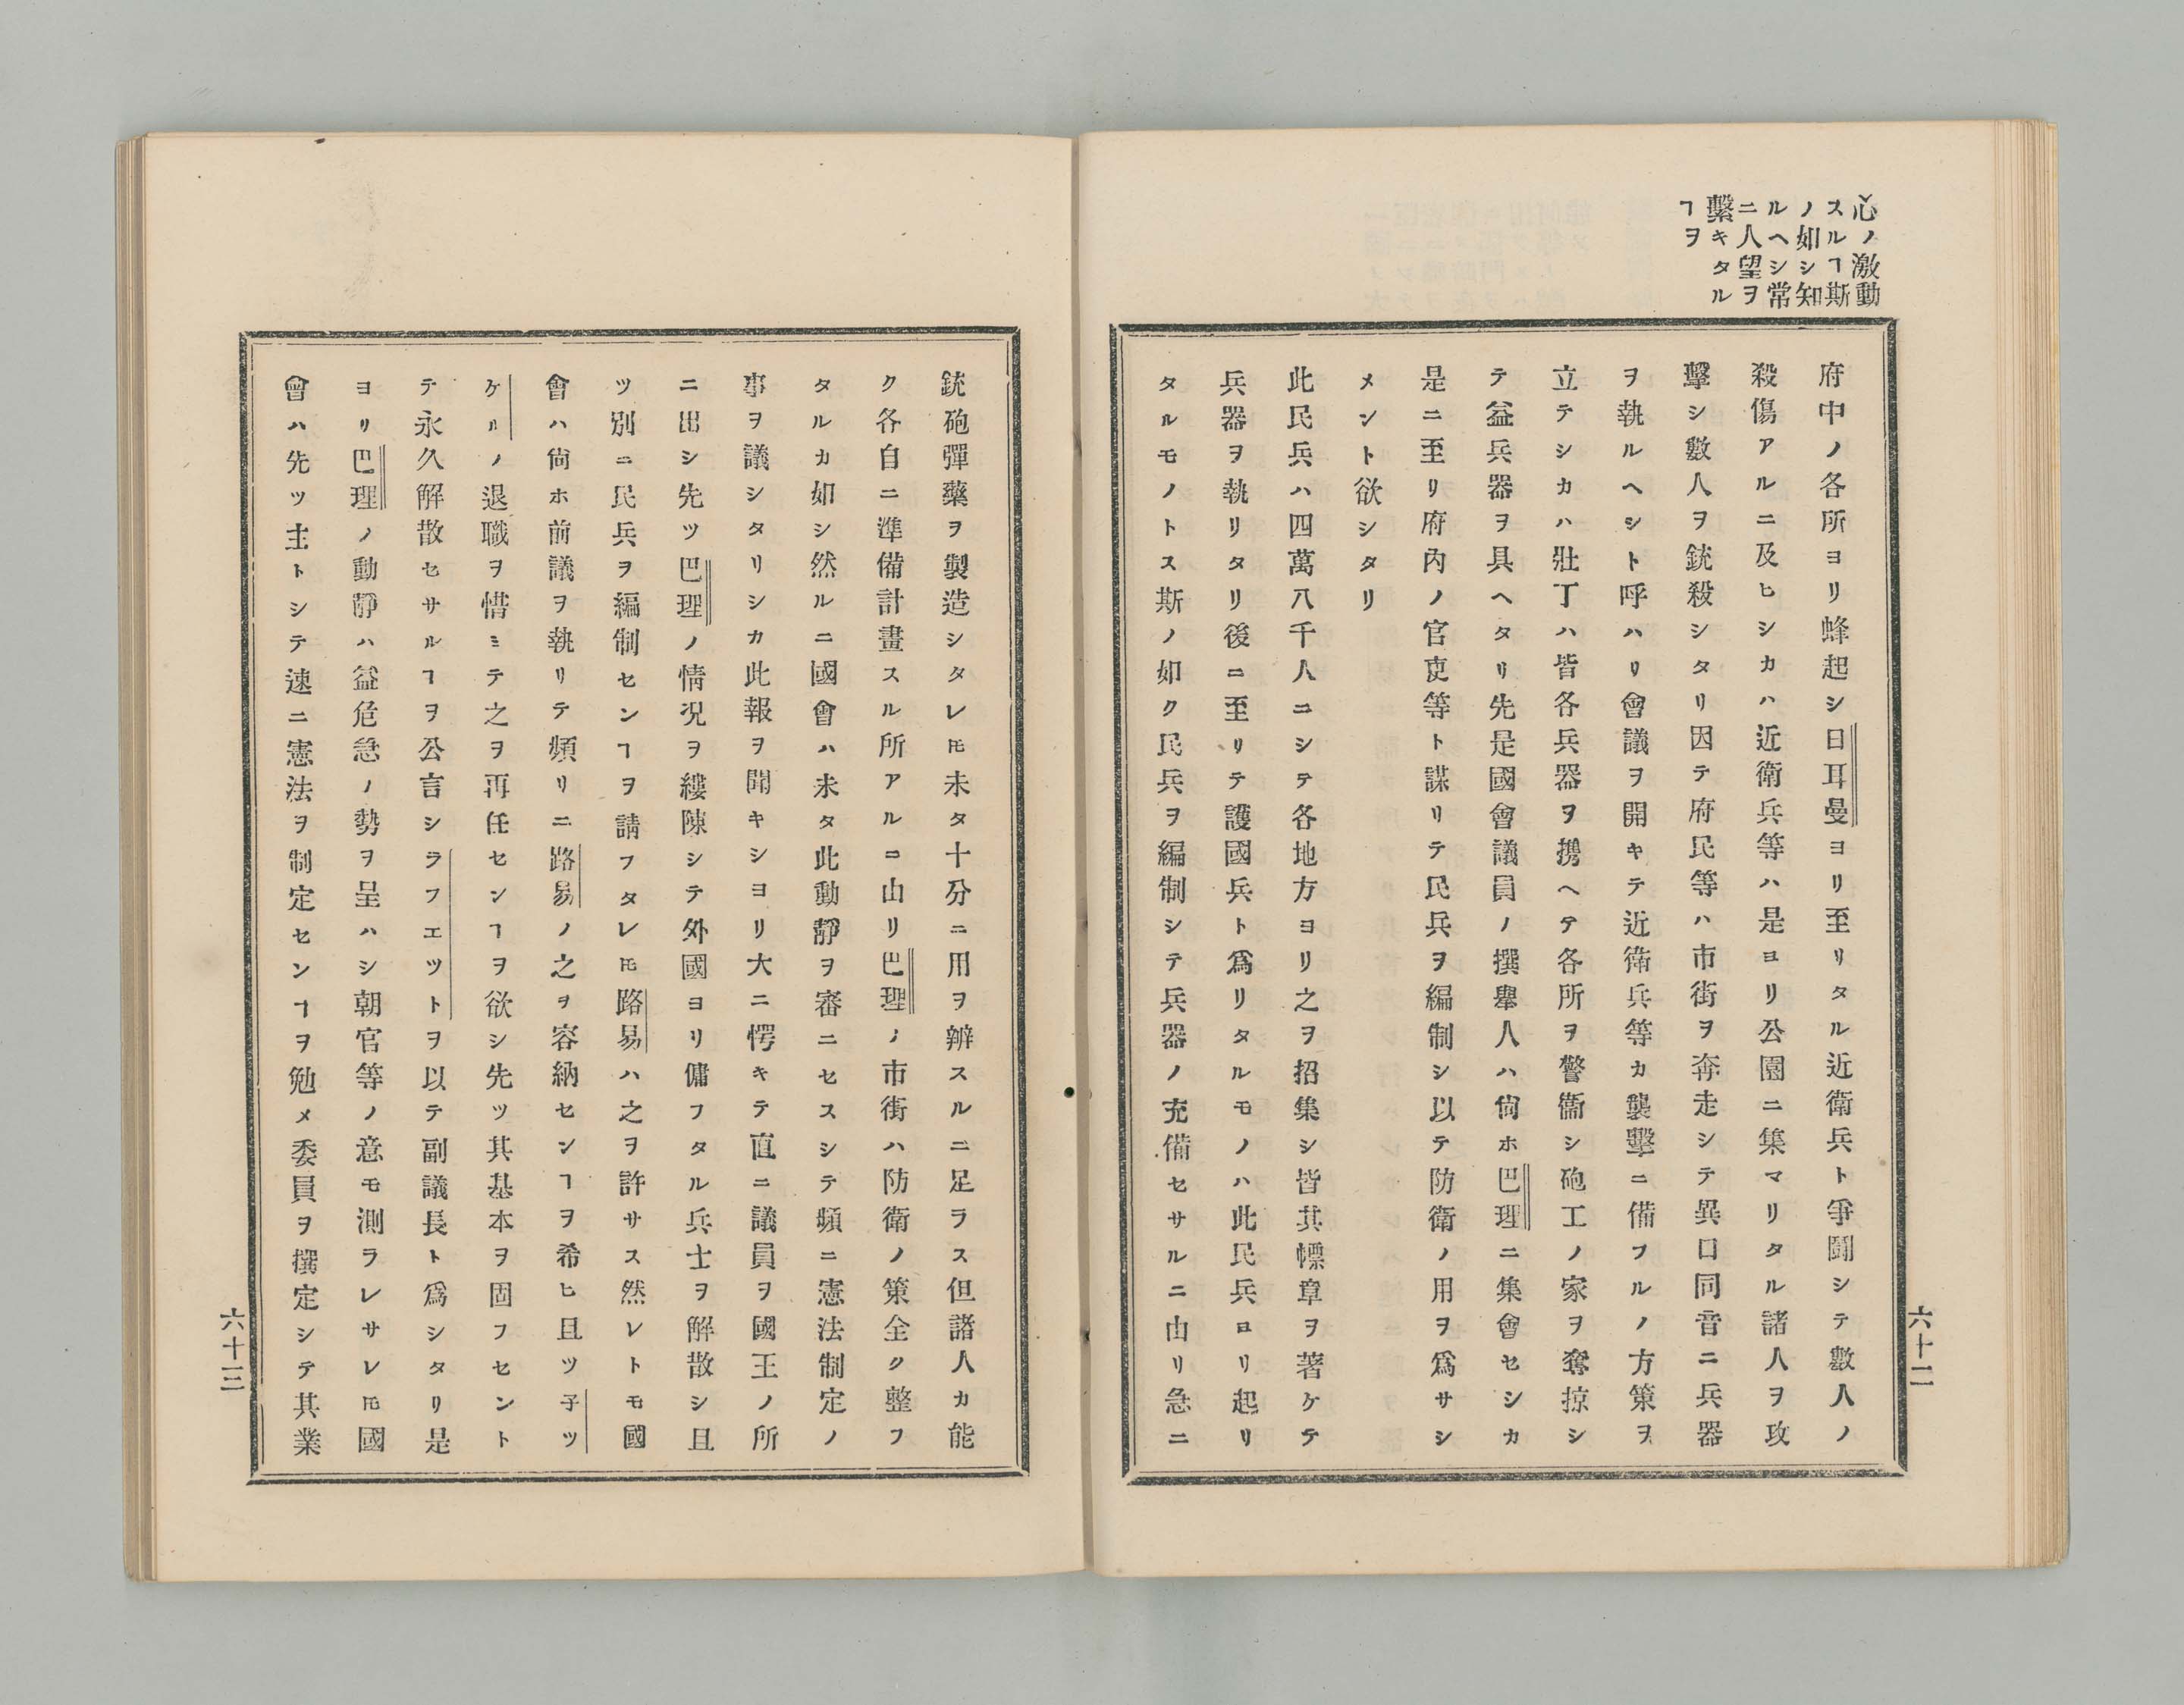 心ノ激動
スルヿ斯
ノ如シ知
ルヘシ常
ニ人望ヲ
繫キタル
ヿヲ
府中ノ各所ヨリ蜂起シ日耳曼ヨリ至リタル近衛兵ト爭鬪シテ數人ノ
殺傷アルニ及ヒシカハ近衛兵等ハ是ヨリ公園ニ集マリタル諸人ヲ攻
擊シ數人ヲ銃殺シタリ因テ府民等ハ市街ヲ奔走シテ異口同音ニ兵器
ヲ執ルヘシト呼ハリ會議ヲ開キテ近衛兵等カ襲擊ニ備フルノ方策ヲ
立テシカハ壯丁ハ皆各兵器ヲ携ヘテ各所ヲ警衞シ砲工ノ家ヲ奪掠シ
テ益兵器ヲ具ヘタリ先是國會議員ノ撰擧人ハ尙ホ巴理ニ集會セシカ
是ニ至リ府內ノ官吏等ト謀リテ民兵ヲ編制シ以テ防衛ノ用ヲ爲サシ
メント欲シタリ
此民兵ハ四萬八千人ニシテ各地方ヨリ之ヲ招集シ皆其幖章ヲ著ケテ
兵器ヲ執リタリ後ニ至リテ護國兵ト爲リタルモノハ此民兵ヨリ起リ
タルモノトス斯ノ如ク民兵ヲ編制シテ兵器ノ充備セサルニ由リ急ニ
六十二
銃砲彈藥ヲ製造シタレ𪜈未タ十分ニ用ヲ辨スルニ足ラス但諸人カ能
ク各自ニ準備計畫スル所アルニ由リ巴理ノ市街ハ防衛ノ策全ク整フ
タルカ如シ然ルニ國會ハ未タ此動靜ヲ審ニセスシテ頻ニ憲法制定ノ
事ヲ議シタリシカ此報ヲ聞キシヨリ大ニ愕キテ直ニ議員ヲ國王ノ所
ニ出シ先ツ巴理ノ情况ヲ縷陳シテ外國ヨリ傭フタル兵士ヲ解散シ且
ツ別ニ民兵ヲ編制センヿヲ請フタレ𪜈路易ハ之ヲ許サス然レトモ國
會ハ尙ホ前議ヲ執リテ頻リニ路易ノ之ヲ容納センヿヲ希ヒ且ツ子ツ
ケルノ退職ヲ惜ミテ之ヲ再任センヿヲ欲シ先ツ其基本ヲ固フセント
テ永久解散セサルヿヲ公言シラフエツトヲ以テ副議長ト爲シタリ是
ヨリ巴理ノ動靜ハ益危急ノ勢ヲ呈ハシ朝官等ノ意モ測ラレサレ𪜈國
會ハ先ツ主トシテ速ニ憲法ヲ制定センヿヲ勉メ委員ヲ撰定シテ其業
六十三